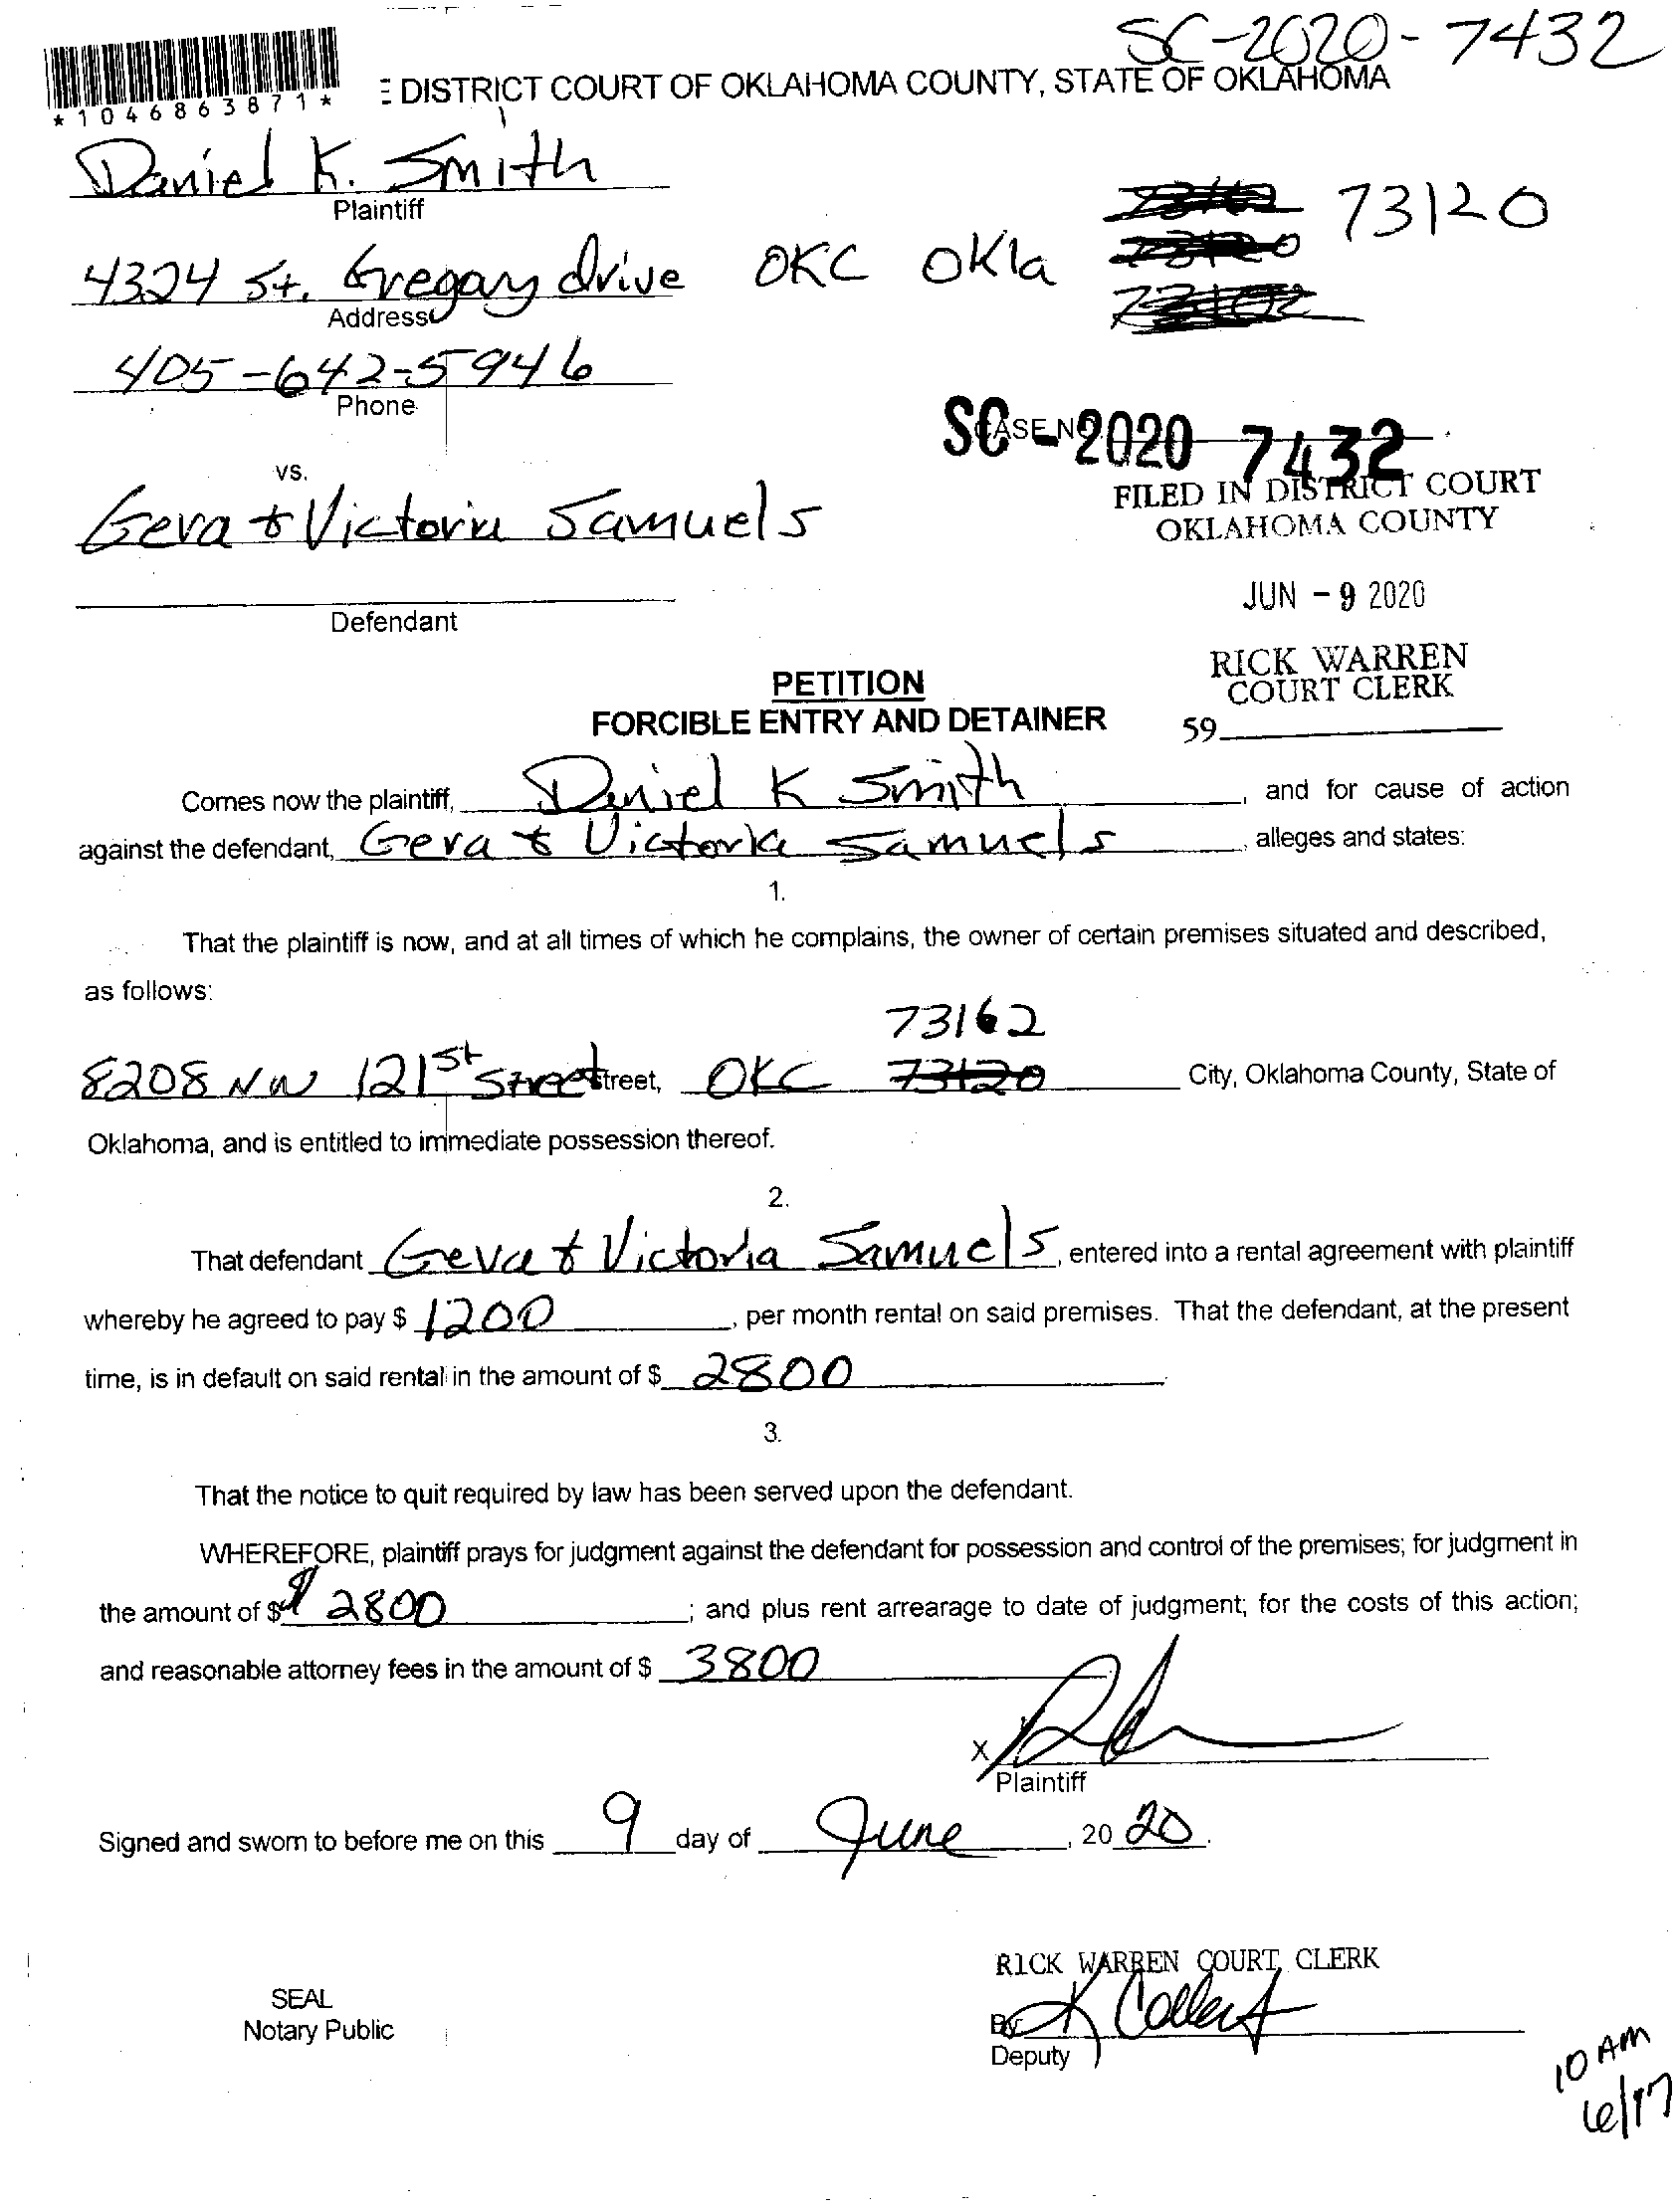 SC-2020-7432
*1046863871*
DISTRICT COURT OF OKLAHOMA COUNTY, STATE OF OKLAHOMA
Daniel K. Smith
Plaintiff
73120
4324 St. Gregary drive OKC Okla
Address
405-642-5946
Phone
CASE NO.
SC-2020 7432
vs.
FILED IN DISTRICT COURT
OKLAHOMA COUNTY
Geva & Victoria Samuels
JUN - 9 2020
Defendant
RICK WARREN
COURT CLERK
59
PETITION
FORCIBLE ENTRY AND DETAINER
Comes now the plaintiff, Daniel K Smith, and for cause of action
against the defendant, Geva & Victoria Samuels, alleges and states:
1.
That the plaintiff is now, and at all times of which he complains, the owner of certain premises situated and described,
as follows:
73162
8208 NW 121st Street Street, OKC 73120 City, Oklahoma County, State of
Oklahoma, and is entitled to immediate possession thereof.
2.
That defendant Geva & Victoria Samuels, entered into a rental agreement with plaintiff
whereby he agreed to pay $ 1200, per month rental on said premises. That the defendant, at the present
time, is in default on said rental in the amount of $ 2800
3.
That the notice to quit required by law has been served upon the defendant.
WHEREFORE, plaintiff prays for judgment against the defendant for possession and control of the premises; for judgment in
the amount of $ $ 2800; and plus rent arrearage to date of judgment; for the costs of this action;
and reasonable attorney fees in the amount of $ 3800
X
Plaintiff
Signed and sworn to before me on this 9 day of June, 20 20.
RICK WARREN COURT CLERK
SEAL
Notary Public
By: K Collert
Deputy
10 AM
6/17